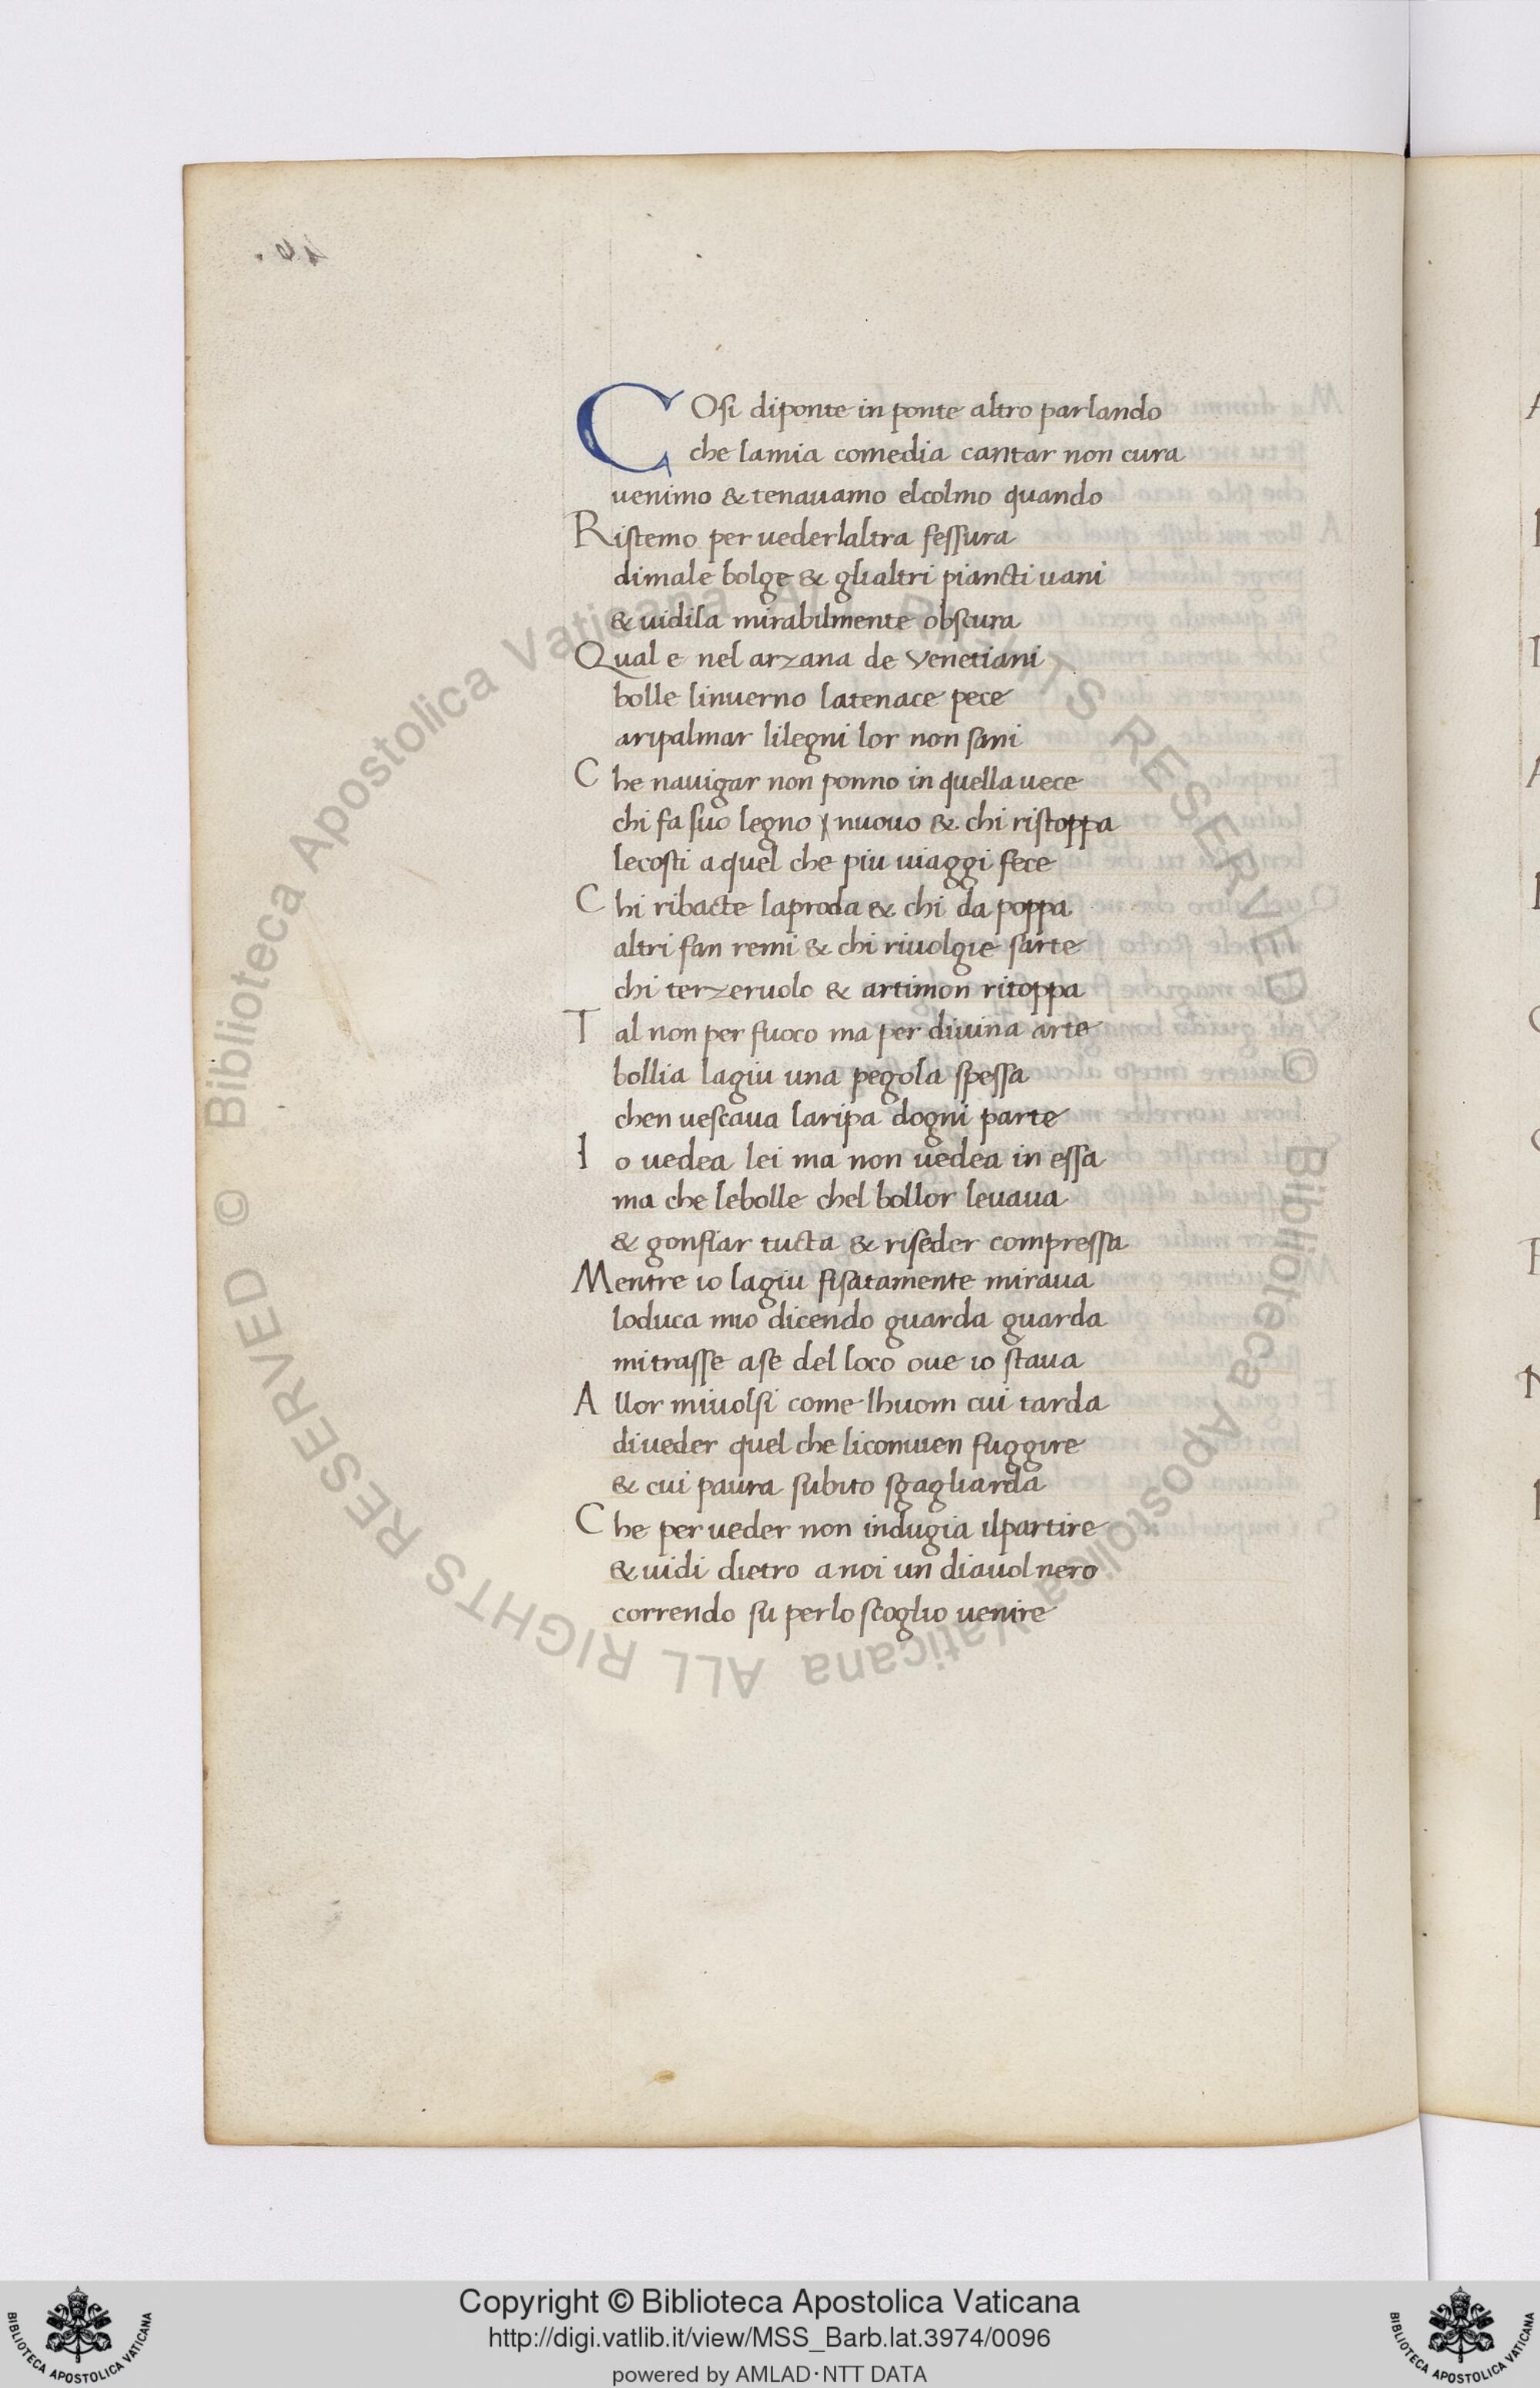 COsi diponte in ponte altro parlando
che lamia comedia cantar non cura
uenimo & tenauamo elcolmo quando
Ristemo per uederlaltra fessura
dimale bolge & glialtri piancti uani
& uidila mirabilmente obscura
Qual e nel arzana de Venetiani
bolle linuerno latenace pece
aripalmar lilegni lor non sani
Che nauigar non ponno in quella uece
chi fa suo legno nuouo & chi ristoppa
lecosti aquel che piu uiaggi fece
Chi ribacte laproda & chi da poppa
altri fan remi & chi riuolgie sarte
chi terzeruolo & artimon ritoppa
Tal non per fuoco ma per diuina arte
bollia lagiu una pegola spessa
chen uescaua laripa dogni parte
Io uedea lei ma non uedea in essa
ma che lebolle chel bollor leuaua
& gonfiar tucta & riseder compressa
Mentre io lagiu fisatamente miraua
loduca mio dicendo guarda guarda
mitrasse ase del loco oue io staua
Allor miuolsi come lhuom cui tarda
diueder quel che liconuien fuggire
& cui paura subito sgagliarda
Che per ueder non indugia ilpartire
& uidi dietro anoi un diauol nero
correndo su perlo scoglio uenire
© Biblioteca Apostolica Vaticana ALL RIGHTS RESERVED © Biblioteca Apostolica Vaticana ALL RIGHTS RESERVED
Copyright © Biblioteca Apostolica Vaticana
http://digi.vatlib.it/view/MSS_Barb.lat.3974/0096
powered by AMLAD·NTT DATA
BIBLIOTECA APOSTOLICA VATICANA
BIBLIOTECA APOSTOLICA VATICANA